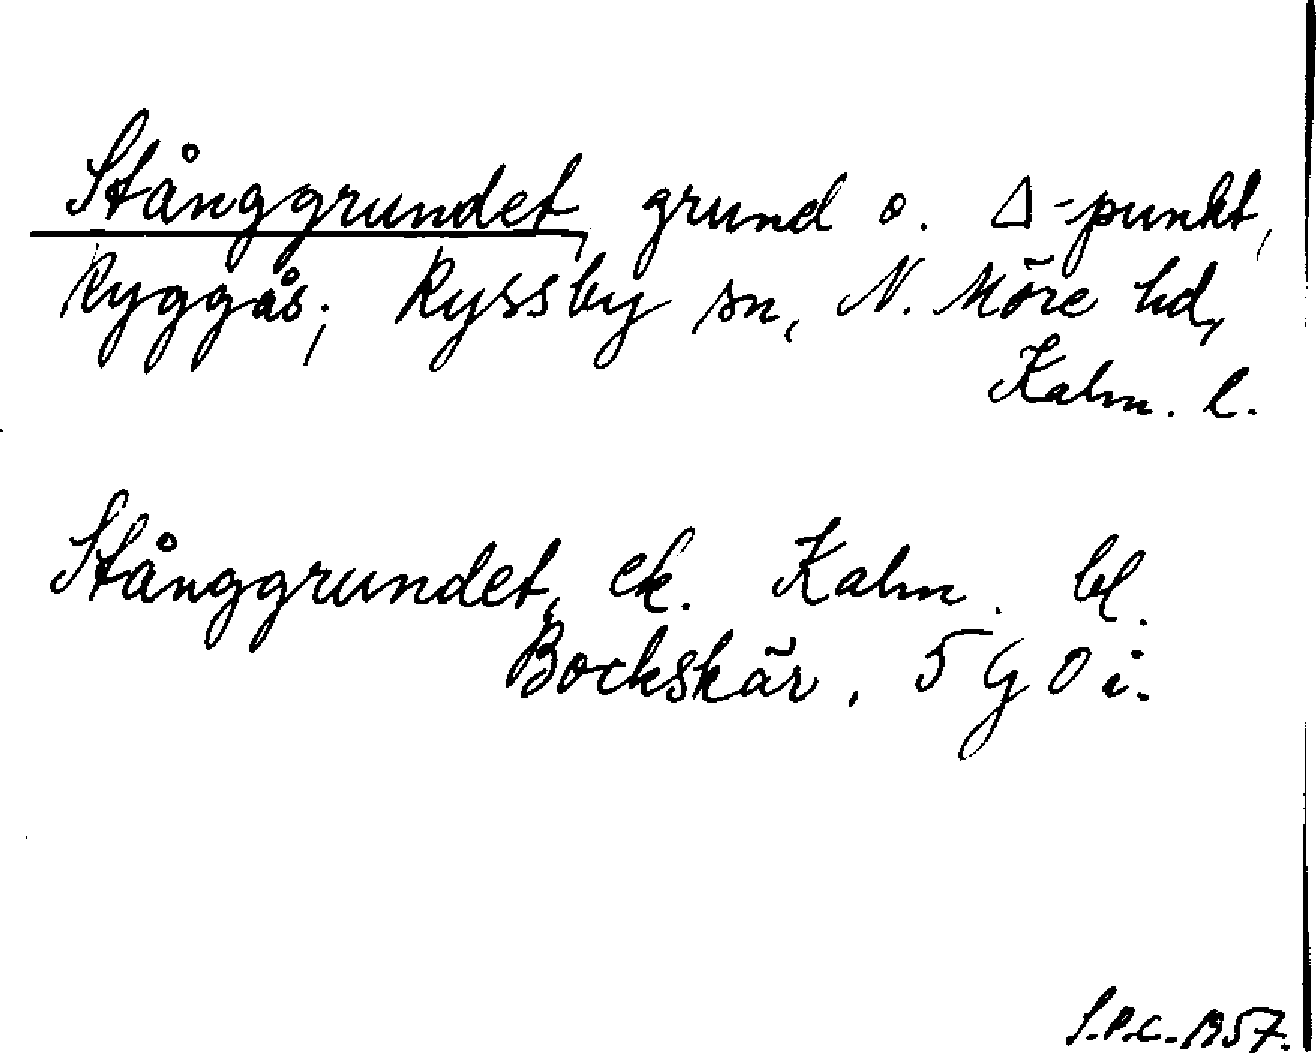 Stånggrundet, grund o. Δ-punkt,
Ryggås; Ryssby sn, N. Möre hd,
Kalm. l.
Stånggrundet, ek. Kalm. bl.
Bockskär, 5 G 0 i.
S.P.C. 1957.